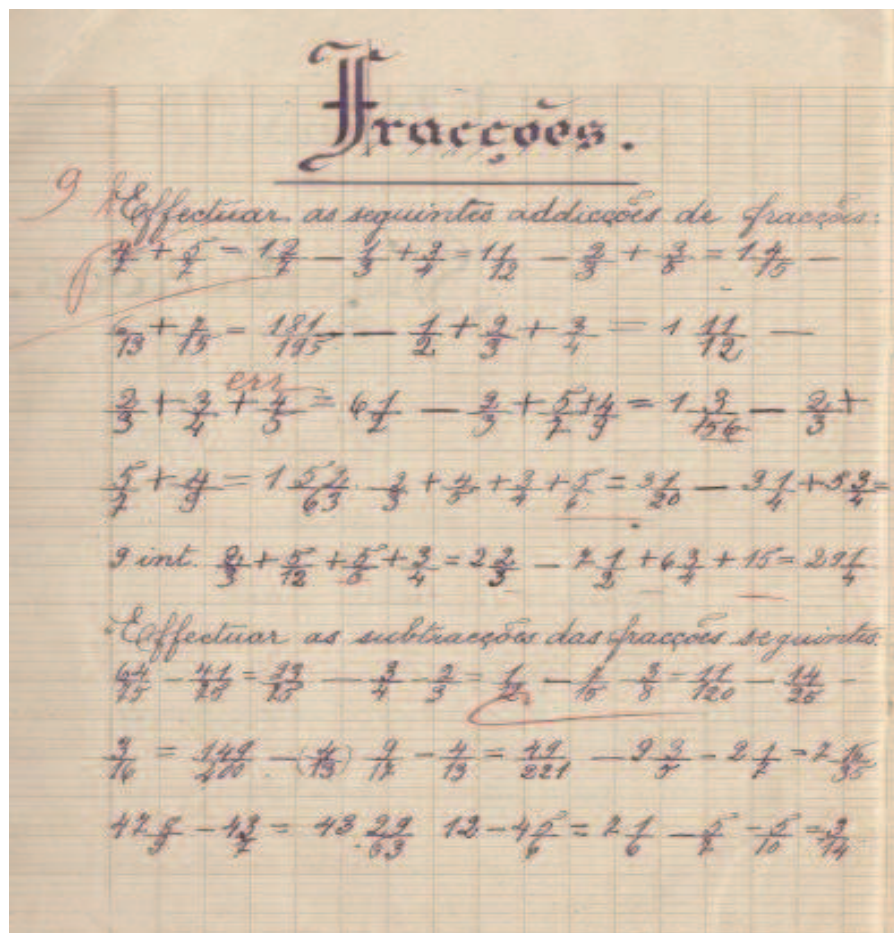 Fracções.
9 Effectuar as seguintes addicções de fracções:
4/7 + 5/7 = 1 2/7 — 1/3 + 3/4 = 1 1/12 — 2/3 + 3/5 = 1 4/15 —
6/13 + 7/15 = 181/195 — 1/2 + 2/3 + 3/4 = 1 11/12 —
err
2/3 + 3/4 + 4/5 = 6 1/2 — 2/3 + 5/7 + 4/9 = 1 3/156 — 2/3 +
5/7 + 4/9 = 1 52/63 - 2/3 + 4/5 + 3/4 + 5/6 = 3 1/20 — 3 1/4 + 5 3/4 =
9 int. 2/3 + 5/12 + 5/6 + 3/4 = 2 2/3 — 7 1/2 + 6 3/4 + 15 = 29 1/4
Effectuar as subtracções das fracções seguintes.
64/75 - 41/75 = 23/75 — 3/4 - 2/3 = 1/12 — 7/15 - 3/8 = 11/120 — 14/25 -
3/16 = 149/400 - (4/13) 9/17 - 4/13 = 49/221 — 9 3/5 - 2 1/7 = 7 16/35
47 8/9 - 4 3/7 = 43 29/63 12 - 4 5/6 = 7 1/6 — 5/7 - 5/10 = 3/14